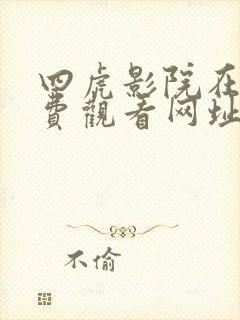 四虎影院在
费觀看网址
不偷